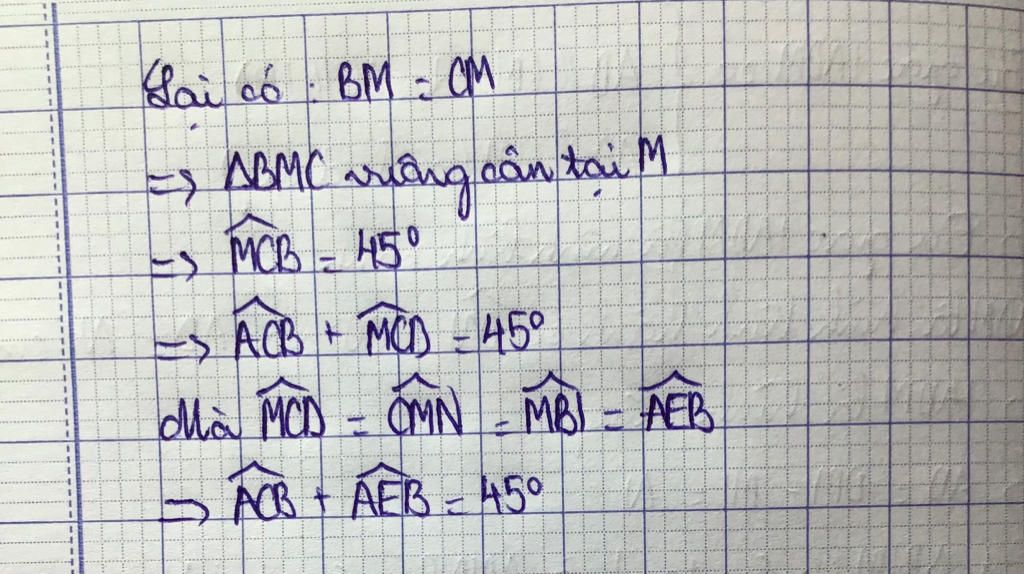 Lại có : BM = CM
=> ΔBMC vuông cân tại M
=> \widehat{MCB} = 45°
=> \widehat{ACB} + \widehat{MCD} = 45°
Mà \widehat{MCD} = \widehat{CMN} = \widehat{MBI} = \widehat{AEB}
=> \widehat{ACB} + \widehat{AEB} = 45°